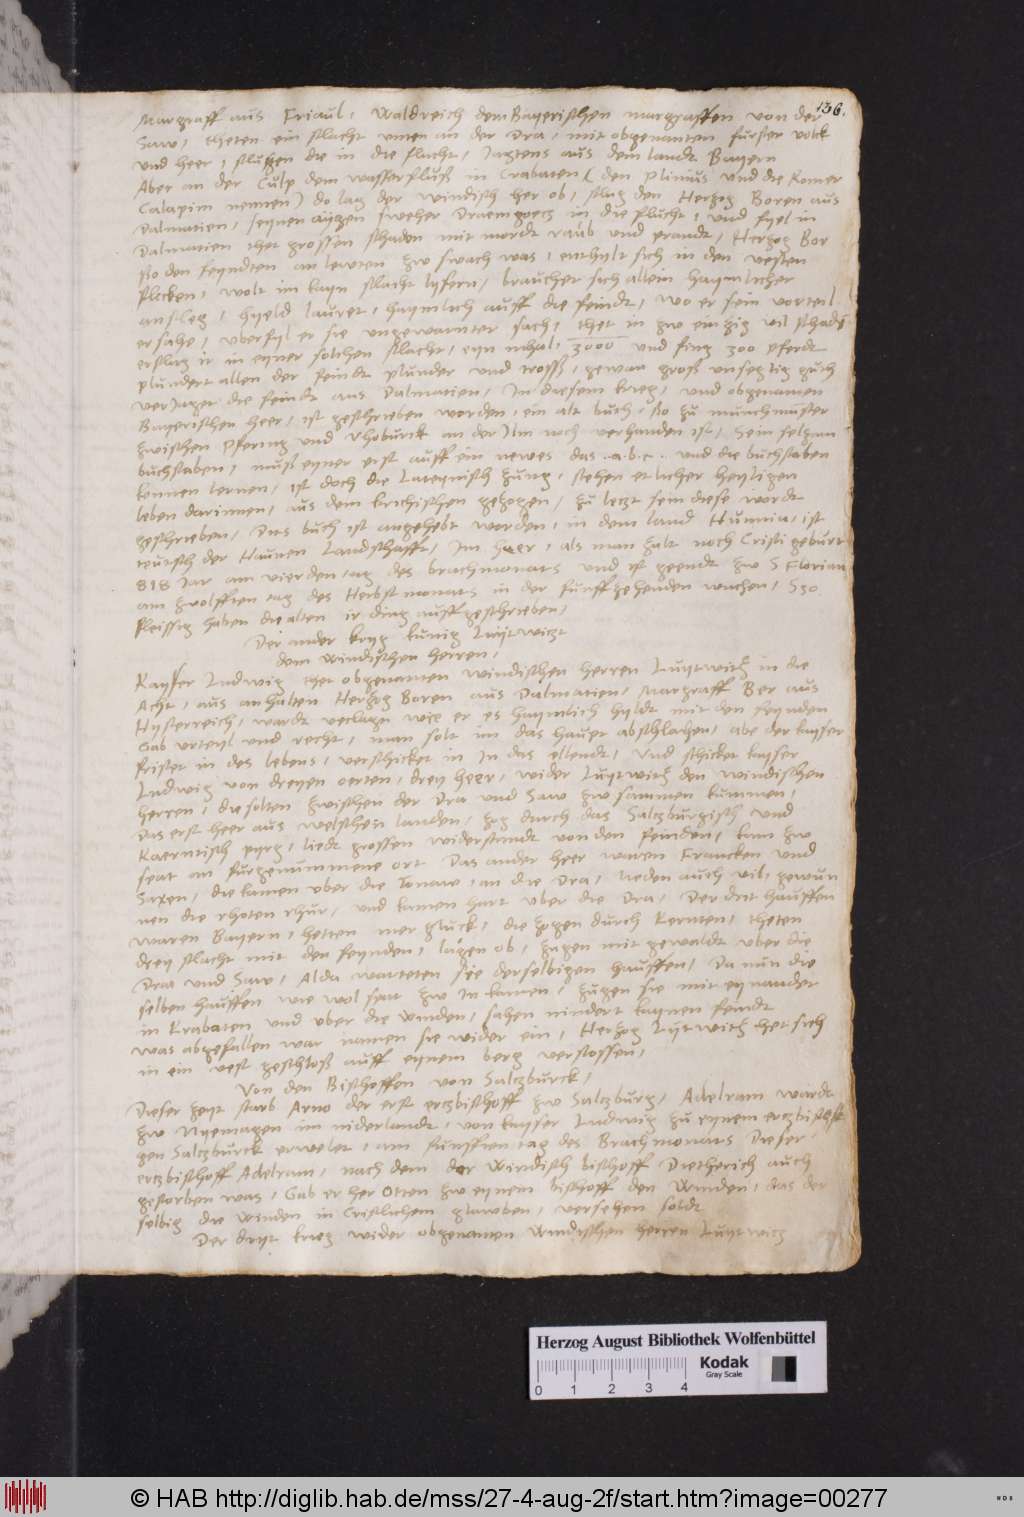 136.
Margraff aus Friaul, Waldreich dem Bayerischen margraffen von der
Saw, theten ein slacht unten an der Dra, mit obgenanten furster volck
und heer, slugen die in die flucht, Jagtens aus dem landt Bayern
Aber an der Culp dem wasserfluß in Crabaten (den Plinius und die Romer
Calapim nennen) do lag der windisch her ob, slug den Hertzog Boren aus
Dalmatien, seynen aygen sweher Draemgoetz in die flucht, und fyel in
Dalmatien thet grossen schaden mit mordt raub und prandt, Hertzog Bor
so den feyndten an lewten zw swach was, enthylt sich in den vesten
flecken, wolt im kayn slacht lyfern, braucher sich allein haymlicher
anschleg, hyeld lauret, haymlich auff die feindt, wo er sein vorteil
ersahe, uberfyl er sie ungewarnter sach, thet in zw eintzig vil schadens
erslug ir in eyner solchen slacht, eyn mhal, 3000 und fing 300 pferdt
plundert allen der feindt plunder und tross, gewan groß unseglig guth
verJaget die feindt aus Dalmatien, In diesem krieg, und obgenanten
Bayerischen heer, ist geschrieben worden, ein alt buch, so zu munchmunster
zwischen Pfering und Vhoburck an der Ilm noch verhanden ist, Sein seltzam
buchstaben, muß eyner erst auff ein newes das .a.b.c. und die buchstaben
konnen lernen, ist doch die Lateynisch zung, stehen etlicher heyligen
leben darinnen, aus dem krichischen getzogen, zu letzt sein diese wordt
geschrieben, Dits buch ist angehebt worden, in dem land Hunnia, ist
teutsch der Haunen Landschafft, Im heer, als man zalt noch Cristi geburt
818 Jar am vierden tag des brachmonats und ist geendt zw S Florian
am zwolfften tag des Herbstmonats in der funfftzehenden wuchen, So
fleissig haben die alten ir ding auffgeschrieben,
Der ander kryg kunig Luytwitz
dem windischen herren,
Kayser Ludwig thet obgenanten windischen herren Luytwith in die
Acht, aus anhalten Hertzog Boren aus Dalmatien, Margraff Ber aus
Hysterreich, wardt verclagt wie er es haymlich hyldt mit den feynden
Gab urteyl und recht, man solt im das hauet abschlachen, aber der kayser
fristet in des lebens, verschicket in In das ellendt, Und schicket kayser
Ludwig von dreyen oerten, drey heer, wider Luytwith den windischen
herren, die solten zwischen der Dra und Saw zw sammen kummen,
Das erst heer aus welschen landen, zog durch das Saltzburgisch und
Kaerntisch pyrg, liedt grossen widerstandt von den feinden, kam zw
spat an furgenummene ort Das ander heer waren Francken und
Saxen, die kamen uber die Tonaw, an die Dra, lieden auch vil, gewun
nen die rhoten rhur, und kamen hart uber die Dra, Der drit hauffen
waren Bayern, hetten mer gluck, die zogen durch Kernten, theten
drey slacht mit den feynden, lagen ob, zugen mit gewaldt uber die
Dra und Saw, Alda warteten sie derselbigen hauffen, Da nun die
selben hauffen wie wol spat zw In kamen, zugen sie mit eynander
in Krabaten und uber die winden, sahen nindert kaynen feindt
was abgefallen war namen sie wider ein, Hertzog Luytwith het sich
in ein vest geschloß auff eynem berg verstossen,
Von den Bischoffen von Saltzburck,
Dieser zeyt starb Arno der erst ertzbischoff zw Saltzburg, Adelram wardt
zw Nyemagen im niderlandt, von kayser Ludwig zu eynem ertzbischoff
gen Saltzburck erwelet, am funfften tag des Brachmonats Dieser
ertzbischoff Adelram, nach dem der windisch bischoff Dietherich auch
gestorben was, Gab er her Otten zw eynem bischoff den Winden, das der
selbig die winden in Cristlichem glawben, versehen soldt
Der dryt krieg wider obgenanten Windischen herren Luytwitz
Herzog August Bibliothek Wolfenbüttel
0 1 2 3 4
Kodak
Gray Scale
© HAB http://diglib.hab.de/mss/27-4-aug-2f/start.htm?image=00277